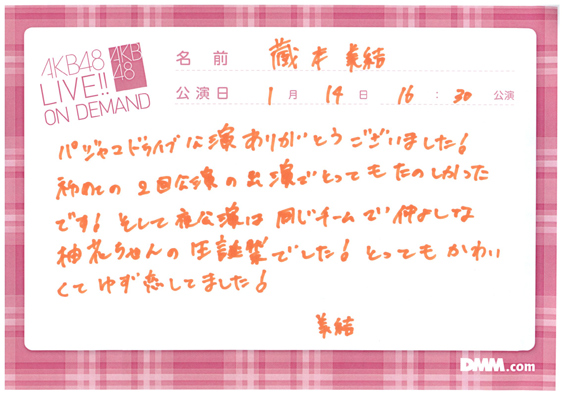 AKB48
LIVE!!
ON DEMAND
AKB
48
名前 蔵本美結
公演日 1月14日 16:30公演
パジャマドライブ公演ありがとうございました!
初めての2回公演の出演でとってもたのしかった
です! そして夜公演は同じチームで仲よしな
柚花ちゃんの生誕祭でした! とってもかわい
くてゆず恋してました!
美結
DMM.com